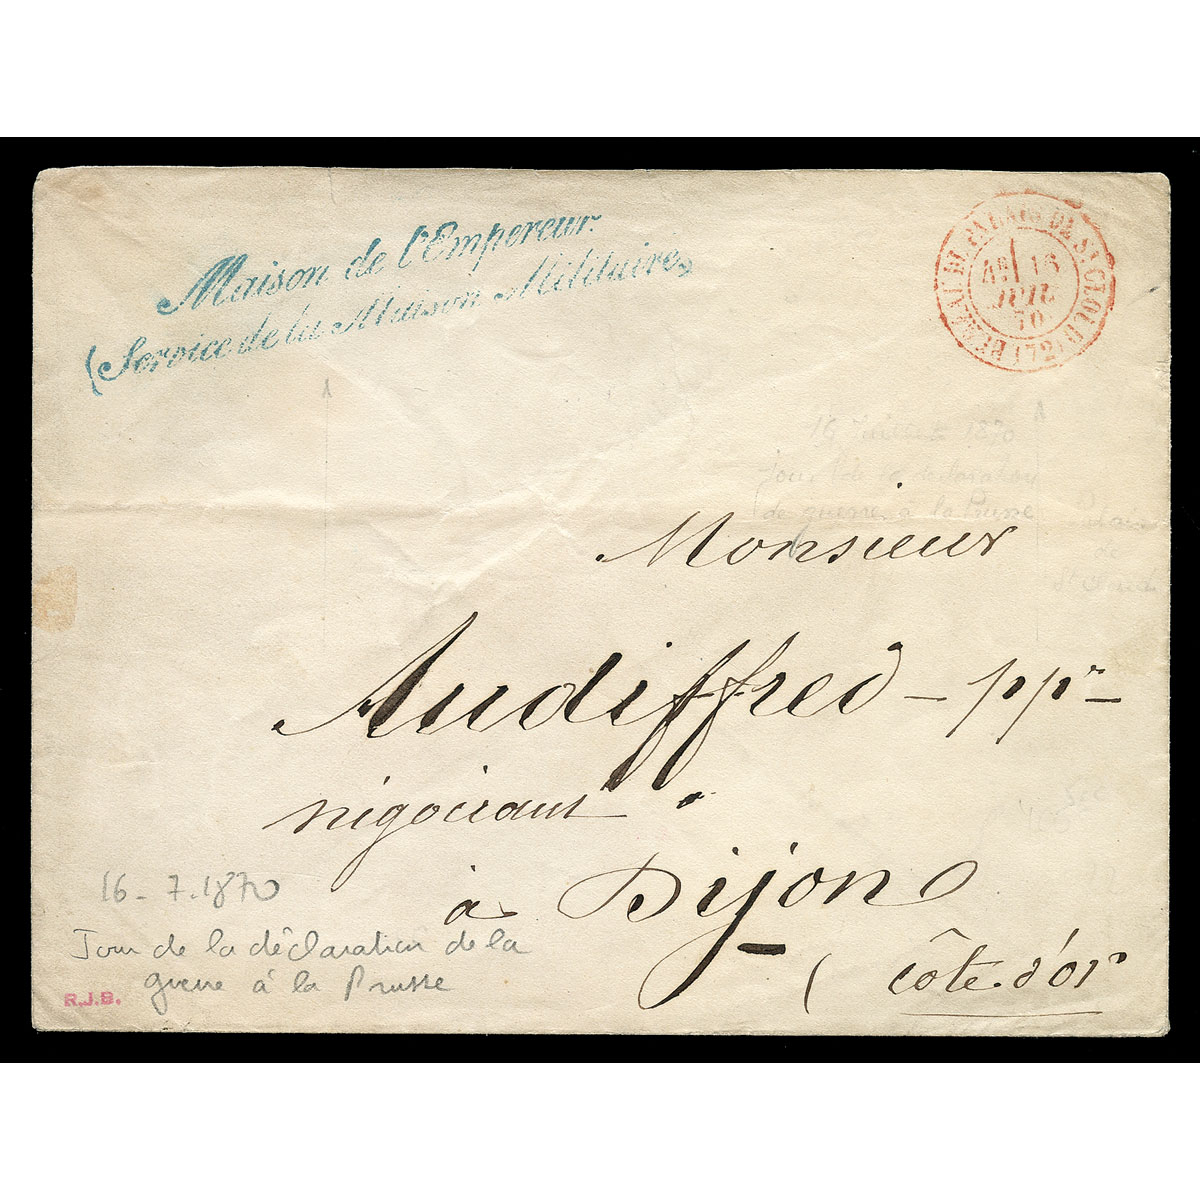 Maison de l'Empereur.
(Service de la Maison Militaire)
BUREAU DU PALAIS DE ST CLOUD (72)
16
JUIL
70
16 Juillet 1870
jour de la déclaration
de guerre à la Prusse
Palais
de
St Cloud
Monsieur
Audiffred - ppre -
négociant
à Dijon
(côte. d'or
16 - 7. 1870
Jour de la déclaration de la
guerre à la Prusse
R.J.B.